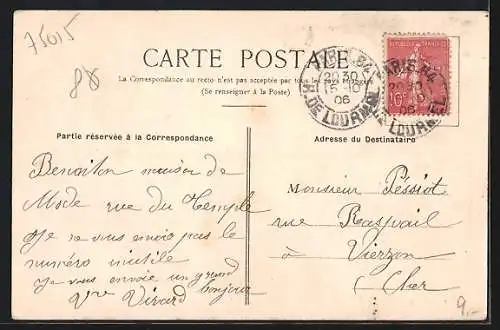 75015
88
CARTE POSTALE
La Correspondance au recto n'est pas acceptée par tous les pays étrangers
(Se renseigner à la Poste)
PARIS 84
20 30
15-10
06
R. DE LOURMEL
PARIS 84
20 30
06
LOURMEL
REPUBLIQUE FRANÇAISE
10c
Partie réservée à la Correspondance
Adresse du Destinataire
Benoiton maison de
Mode rue du Temple
Je ne vous envoie pas le
numéro inutile
Je vous envoie un grand
bonjour
Vve Virard
Monsieur Péssiot
rue Raspail
à Vierzon
Cher
9.-